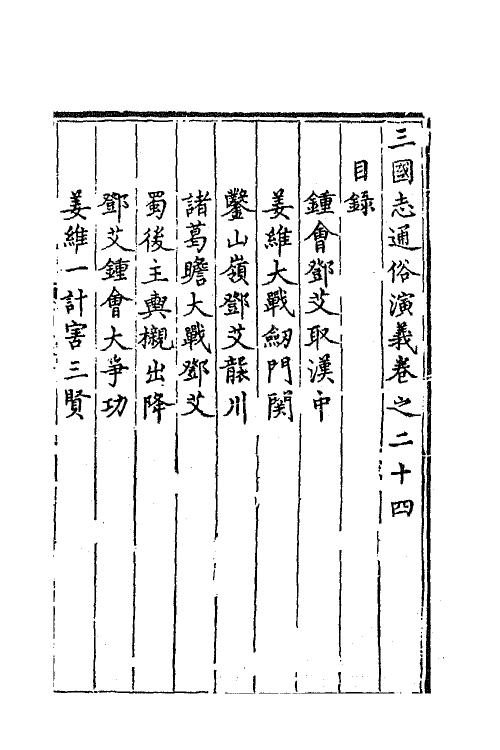 三國志通俗演義卷之二十四
目録
鍾會鄧艾取漢中
姜維大戰劒門関
鑿山嶺鄧艾襲川
諸葛瞻大戰鄧艾
蜀後主輿櫬出降
鄧艾鍾會大爭功
姜維一計害三賢